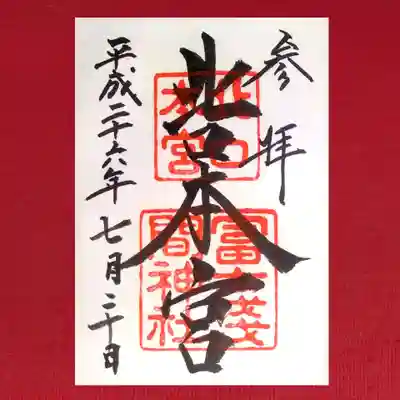 参拝
北口本宮
平成二十六年七月二十日
北口
本宮
富士淺
間神社